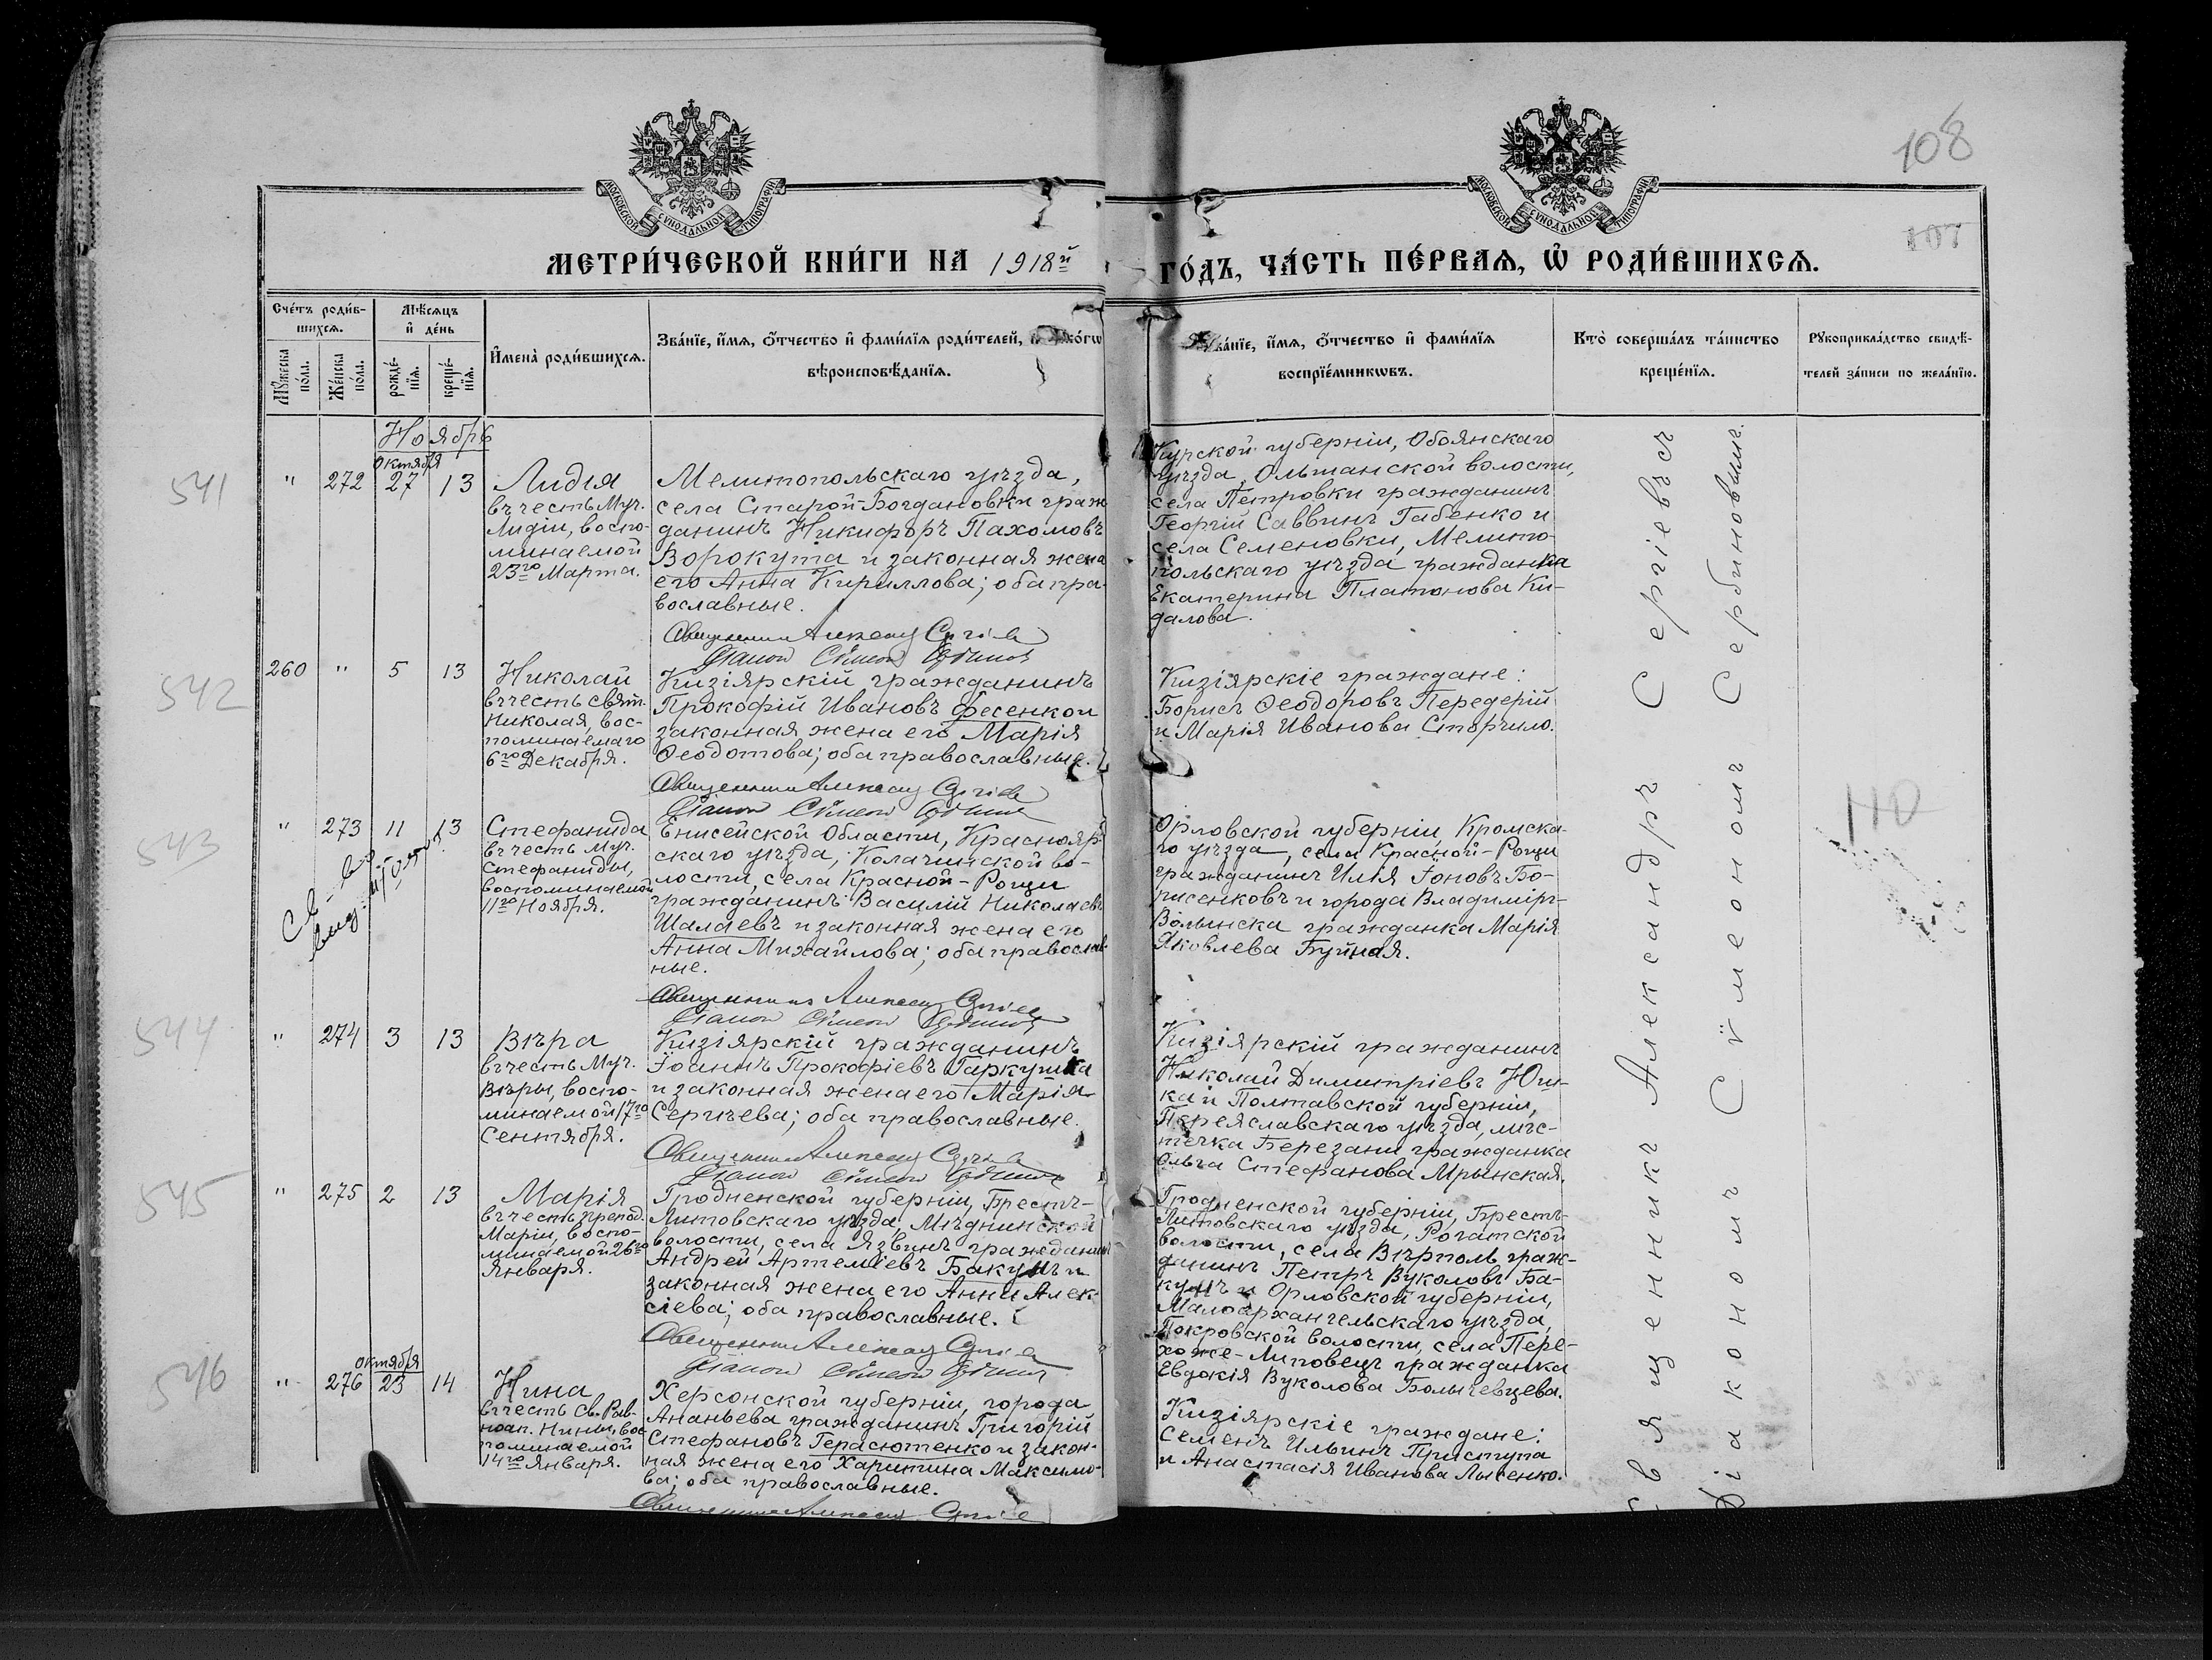 108
107
МОСКОВСКОЙ СѴНОДАЛЬНОЙ ТИПОГРАФІИ
МОСКОВСКОЙ СѴНОДАЛЬНОЙ ТИПОГРАФІИ
МЕТРИ́ЧЕСКОЙ КНИ́ГИ НА 1918й
ГО́ДЪ, ЧА́СТЬ ПЕ́РВАЯ, Ѡ҆ РОДИ́ВШИХСЯ.
Сче́тъ роди́в-
шихся.
Мѣ́сяцъ
и҆ де́нь
Мꙋ́жеска
по́ла.
Же́нска
по́ла.
рожде́-
нїя.
креще́-
нїя.
И҆мена̀ роди́вшихся.
Зва́нїе, и҆́мя, ѻ҆́тчество и҆ фами́лїя роди́телей, и҆ како́гѡ
вѣроисповѣ́данїя.
Зва́нїе, и҆́мя, ѻ҆́тчество и҆ фами́лїя
воспрїе́мникѡвъ.
Кто̀ соверша́лъ та́инство
креще́нїя.
Рꙋкоприкла́дство свидѣ́-
телей за́писи по жела́нїю.
Ноябрь
541
"
272
Октября
27
13
Лидія
въ честь Муч.
Лидіи, воспо-
минаемой
23го Марта.
Мелитопольскаго уѣзда,
села Старой-Богдановки граж
данинъ Никифоръ Пахомовъ
Ворокута и законная жена
его Анна Кириллова; оба пра-
вославные.
Курской губерніи, Обоянскаго
уѣзда, Ольшанской волости,
села Петровки гражданинъ
Георгій Саввинъ Габенко и
села Семеновки, Мелито-
польскаго уѣзда гражданка
Екатерина Платонова Ки-
далова.
542
260
"
5
13
Николай
въ честь Свят.
Николая, вос-
поминаемаго
6го Декабря.
Кизіярскій гражданинъ
Прокофій Ивановъ Фесенко и
законная жена его Марія
Ѳеодотова; оба православные.
Кизіярскіе граждане:
Борисъ Ѳеодоровъ Передерій
и Марія Иванова Сторчило.
543
"
273
11
13
Стефанида
въ честь Муч.
Стефаниды,
воспоминаемой
11го Ноября.
Енисейской Области, Краснояр-
скаго уѣзда, Колачинской во-
лости, села Красной-Рощи
гражданинъ Василій Николаевъ
Шалаевъ и законная жена его
Анна Михайлова; оба православ-
ные.
Орловской губерніи Кромска-
го уѣзда, села Красной-Рощи
гражданинъ Илія Іоновъ Бо-
рисенковъ и города Владиміръ-
Волынска гражданка Марія
Яковлева Буйная.
110
544
"
274
3
13
Вѣра
въ честь Муч.
Вѣры, воспо-
минаемой 17го
Сентября.
Кизіярскій гражданинъ
Іоаннъ Прокофіевъ Гаркушка
и законная жена его Марія
Сергѣева; оба православные.
Кизіярскій гражданинъ
Николай Димитріевъ Юш-
ка и Полтавской губерніи,
Переяславскаго уѣзда, мѣс-
течка Березани гражданка
Ольга Стефанова Мрынская.
545
"
275
2
13
Марія
въ честь препод.
Маріи, воспо-
минаемой 26го
Января.
Гродненской губерніи, Брестъ-
Литовскаго уѣзда,
волости, села Язвинъ гражданинъ
Андрей Артеміевъ Бакунъ и
законная жена его Анна Алек-
сіева; оба православные.
Гродненской губерніи, Брестъ-
Литовскаго уѣзда, Рогатской
волости, села Вѣрполь граж-
данинъ Петръ Вуколовъ Ба-
кунъ и Орловской губерніи,
Малоархангельскаго уѣзда,
Покровской волости, села Пере-
хоже-Липовецъ гражданка
Евдокія Вуколова Болычевцева.
546
"
276
Октября
23
14
Нина
въ честь Св. Рав-
ноап. Нины, вос-
поминаемой
14го Января.
Херсонской губерніи, города
Ананьева гражданинъ Григорій
Стефановъ Герасютенко и закон-
ная жена его Харитина Максимо-
ва; оба православные.
Кизіярскіе граждане:
Семенъ Ильинъ Приступа
и Анастасія Иванова Лысенко.
Священникъ Александръ Сергіевъ съ
Діакономъ Сѵмеономъ Сербиновымъ.